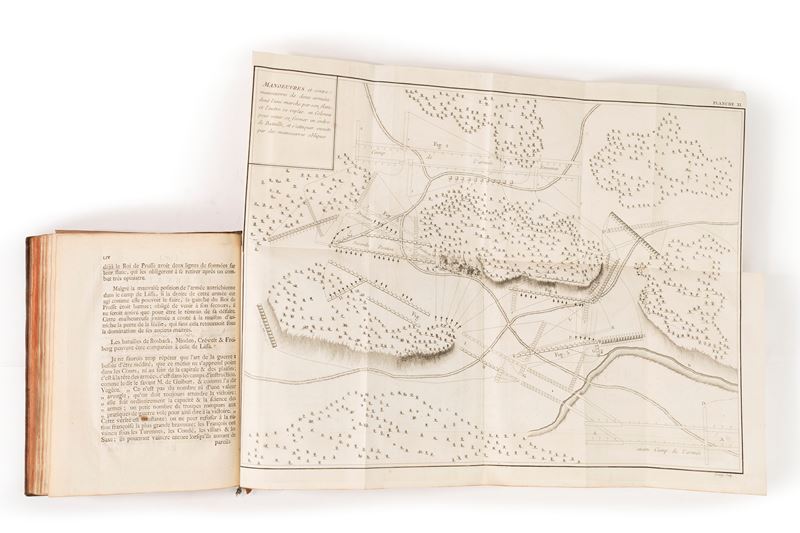 LIV
déjà le Roi de Prusse avoit deux lignes de formées sur
leur flanc, qui les obligerent à se retirer après un com-
bat très opiniatre.
Malgré la mauvaise position de l'armée autrichienne
dans le camp de Lissa, si la droite de cette armée eut
agi comme elle pouvoit le faire, la gauche du Roi de
Prusse étoit battue; obligé de venir à son secours, il
ne seroit arrivé que pour être le témoin de sa défaite.
Cette malheureuse journée a couté à la maison d'Au-
triche la perte de la Silésie, qui sans cela retournoit sous
la domination de ses anciens maitres.
Les batailles de Rosback, Minden, Crévelt & Frei-
berg peuvent être comparées à celle de Lissa.
Je ne saurois trop répéter que l'art de la guerre a
besoin d'être médité, que ce métier ne s'apprend point
dans les Cours, ni au sein de la capitale & des plaisirs;
c'est à la tête des armées, c'est dans les camps d'instruction
comme le dit le savant M. de Guibert, & comme l'a dit
Végéce. „ Ce n'est pas du nombre ni d'une valeur
„ aveugle, qu'on doit toujours attendre la victoire;
„ elle suit ordinairement la capacité & la science des
„ armes; un petit nombre de troupes rompues aux
„ pratiques de guerre vole pour ainsi dire à la victoire. „
Cette vérité est constante; on ne peut refuser à la na-
tion françoise la plus grande bravoure; les François ont
vaincu sous les Turennes, les Condé, les Villars & les
Saxe; ils pourront vaincre encore lorsqu'ils auront de
pareils
PLANCHE XI.
MANOEUVRES et contre
manoeuvres de deux armées
dont l'une marche par son flanc
et l'autre se replie en Colonne
pour venir se former en ordre
de Bataille, et s'attaquer ensuite
par des manoeuvres obliques
Fig.
Camp de l'armée
Fig.
Fig.
Fig. 3
Camp de l'armée